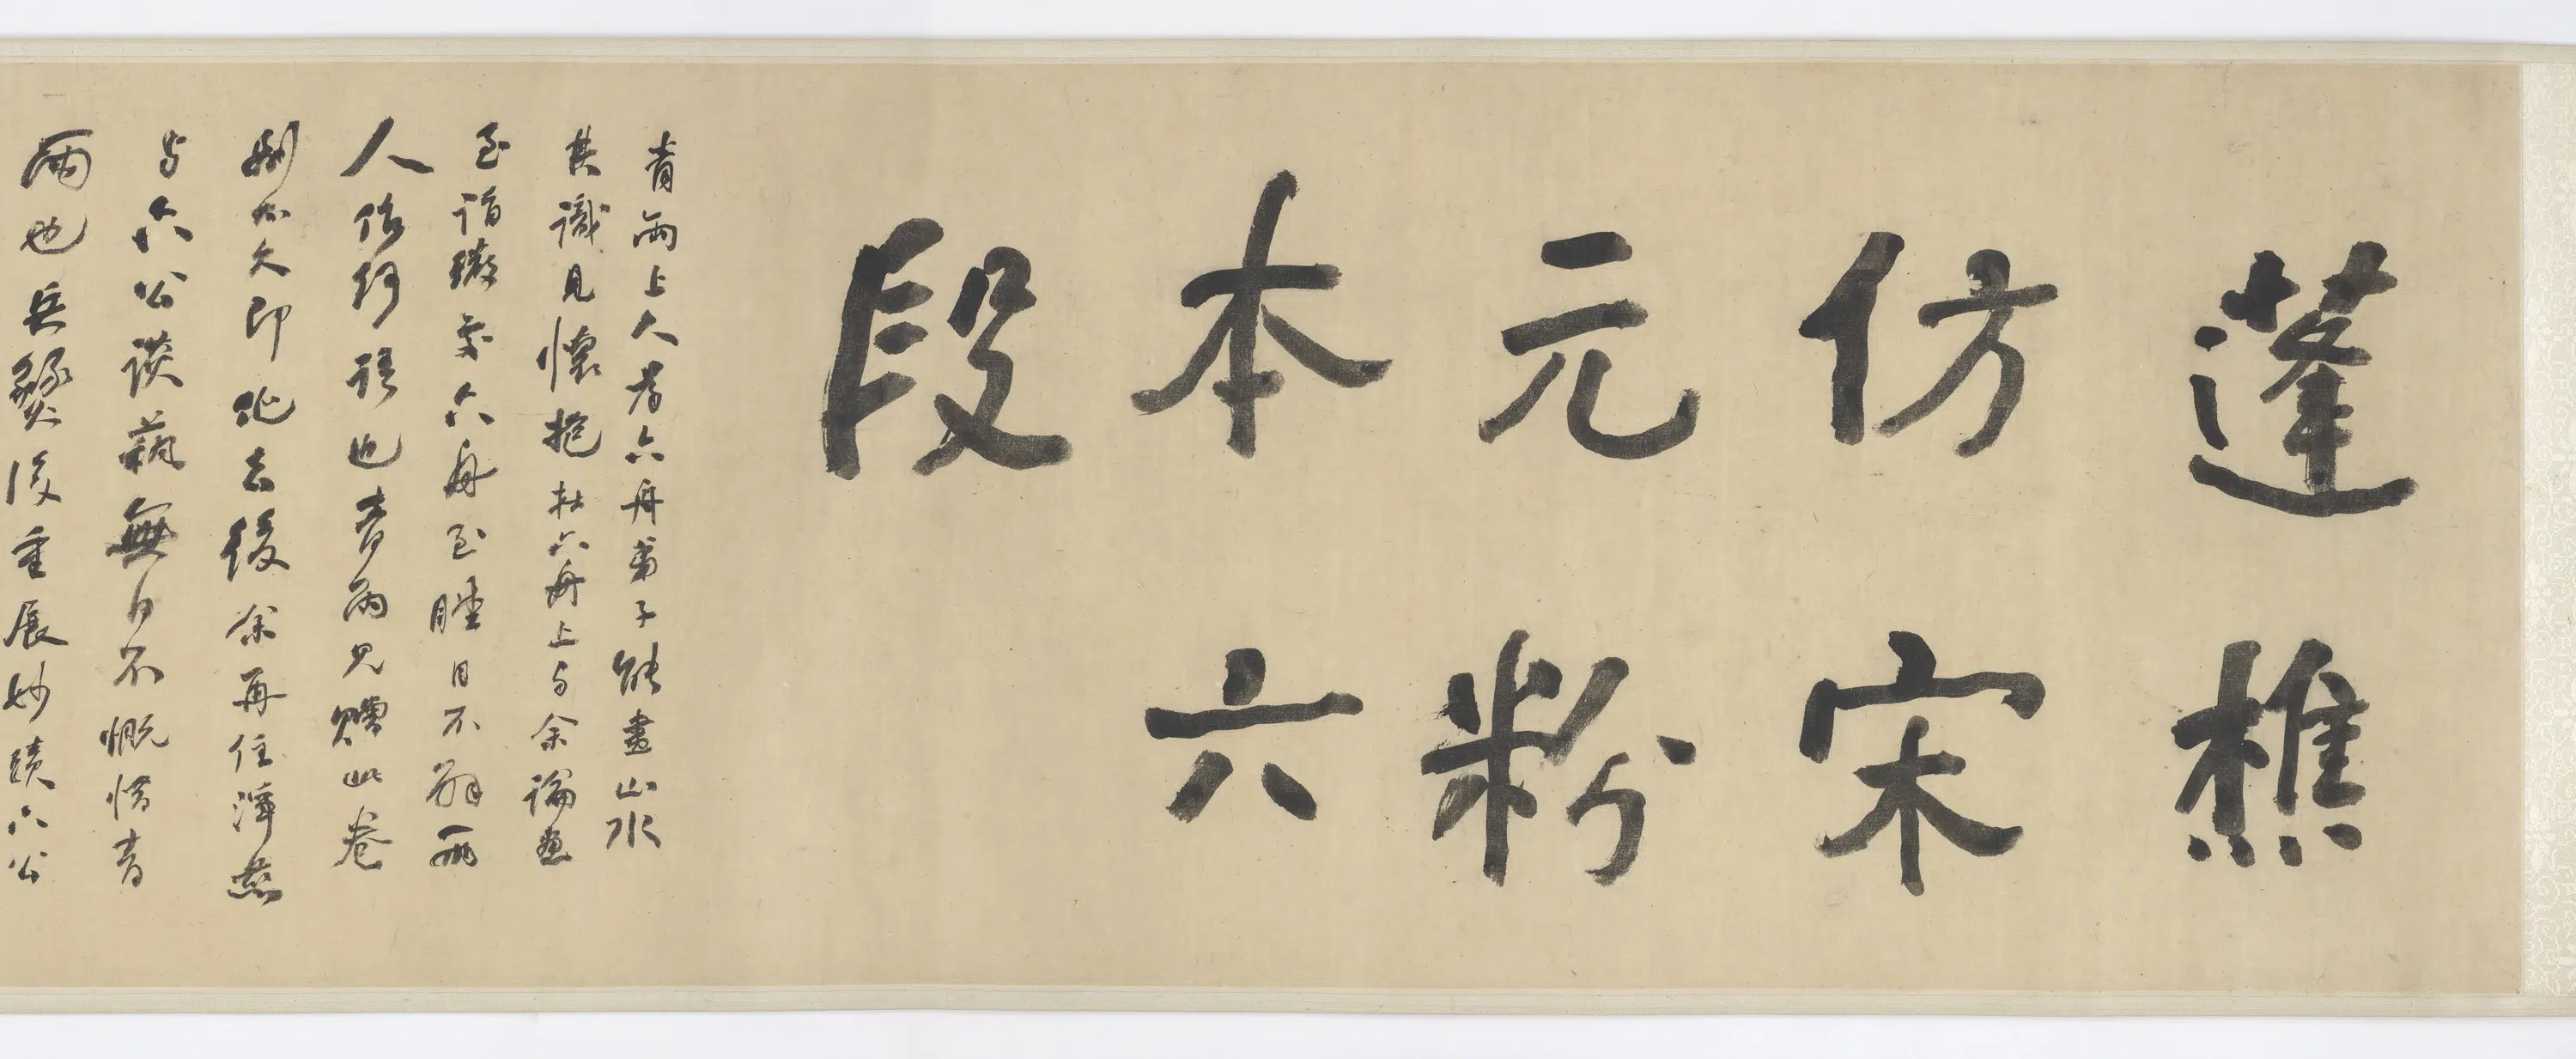 蓬樵
仿宋
元粉
本六
段
青雨上人者六舟弟子能畫山水
其識見懷抱在六舟上与余論畫
至詣微象六舟至瞠目不解兩
人作何語也青雨兄贈此卷
別不久即化去後余再住淨慈
与六公談藝無日不慨惜青
雨也兵燹後重展妙蹟六公